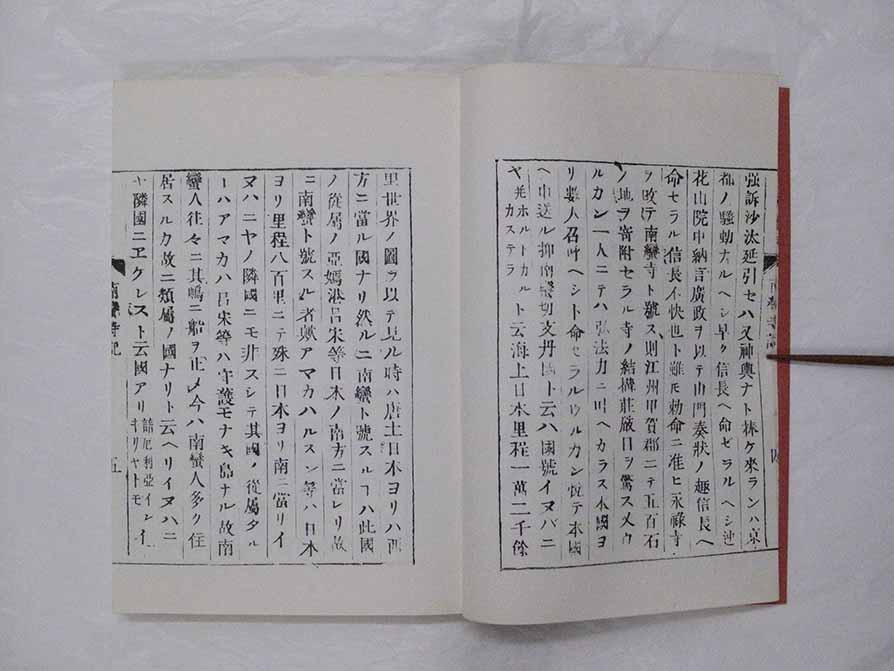 強訴沙汰延引セハ又神輿ナト捧ケ來ランハ京
都ノ騷動ナルヘシ早ク信長ヘ命セラルヘシ迚
花山院中納言廣政ヲ以テ山門奏狀ノ趣信長ヘ
命セラル信長不快也ト雖モ勅命ニ准ヒ永祿寺
ヲ改テ南蠻寺ト號ス則江州甲賀郡ニテ五百石
ノ地ヲ寄附セラル寺ノ結構莊嚴目ヲ驚ス又ウ
ルカン一人ニテハ弘法力ニ叶ヘカラス本國ヨ
リ數人召呼ヘシト命セラルウルカン テ本國
ヘ申送ル抑南蠻切支丹國ト云ハ國號イヌバニ
ヤ 并ホルトカル カステラ ト云海上日本里程一萬二千餘
南蠻寺記
四
里世界ノ圖ヲ以テ見ル時ハ唐土日本ヨリハ西
方ニ當ル國ナリ然ルニ南蠻ト號スルヿハ此國
ノ從屬ノ亞媽港呂宋等日本ノ南方ニ當レリ故
ニ南蠻ト號スル者歟アマカハルスン等ハ日本
ヨリ里程八百里ニテ殊ニ日本ヨリ南ニ當リイ
ヌハニヤノ隣國ニモ非スシテ其國ノ從屬タル
ーハアマカハ呂宋等ハ守護モナキ島ナル故南
蠻人往々ニ其嶋ニ船ヲ止メ今ハ南蠻人多ク住
居スルカ故ニ類屬ノ國ナリト云ヘリイヌハニ
ヤ隣國ニヱケレスト云國アリ 諳厄利亞インイ キリヤトモ
南蠻寺記
五